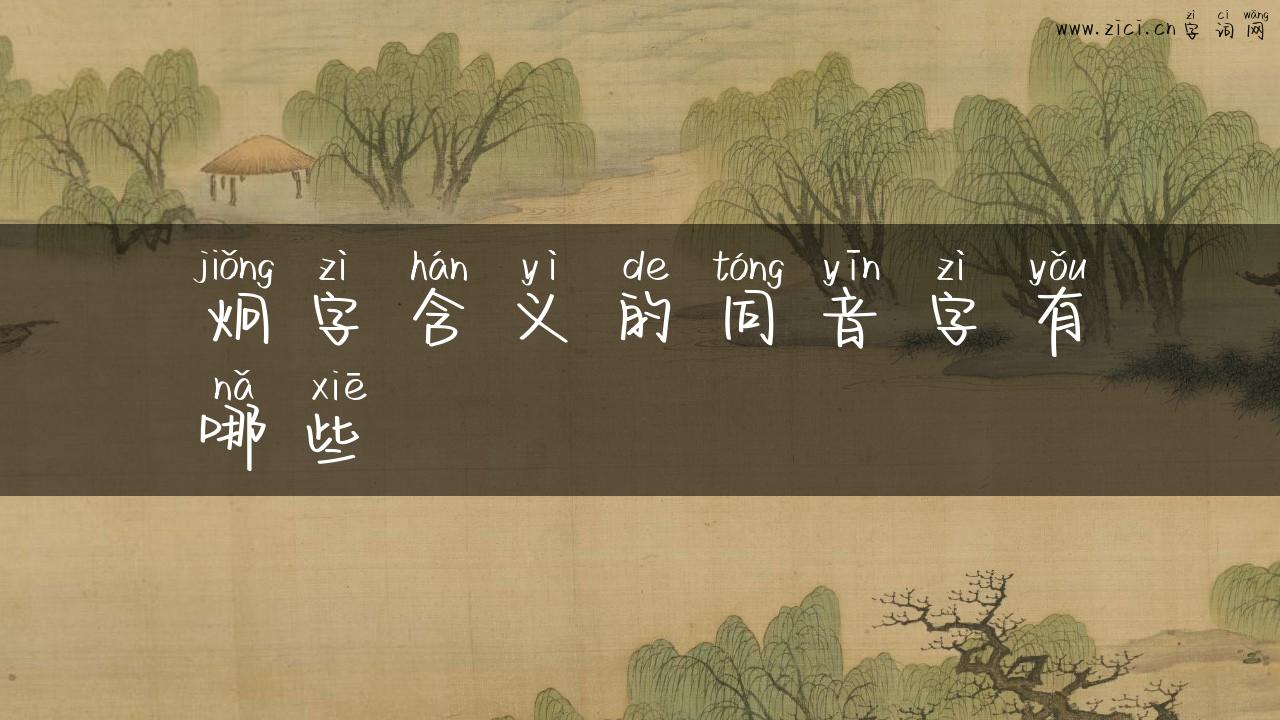 zì cí wǎng
www.zici.cn 字词网
jiǒng zì hán yì de tóng yīn zì yǒu
炯字含义的同音字有
nǎ xiē
哪些